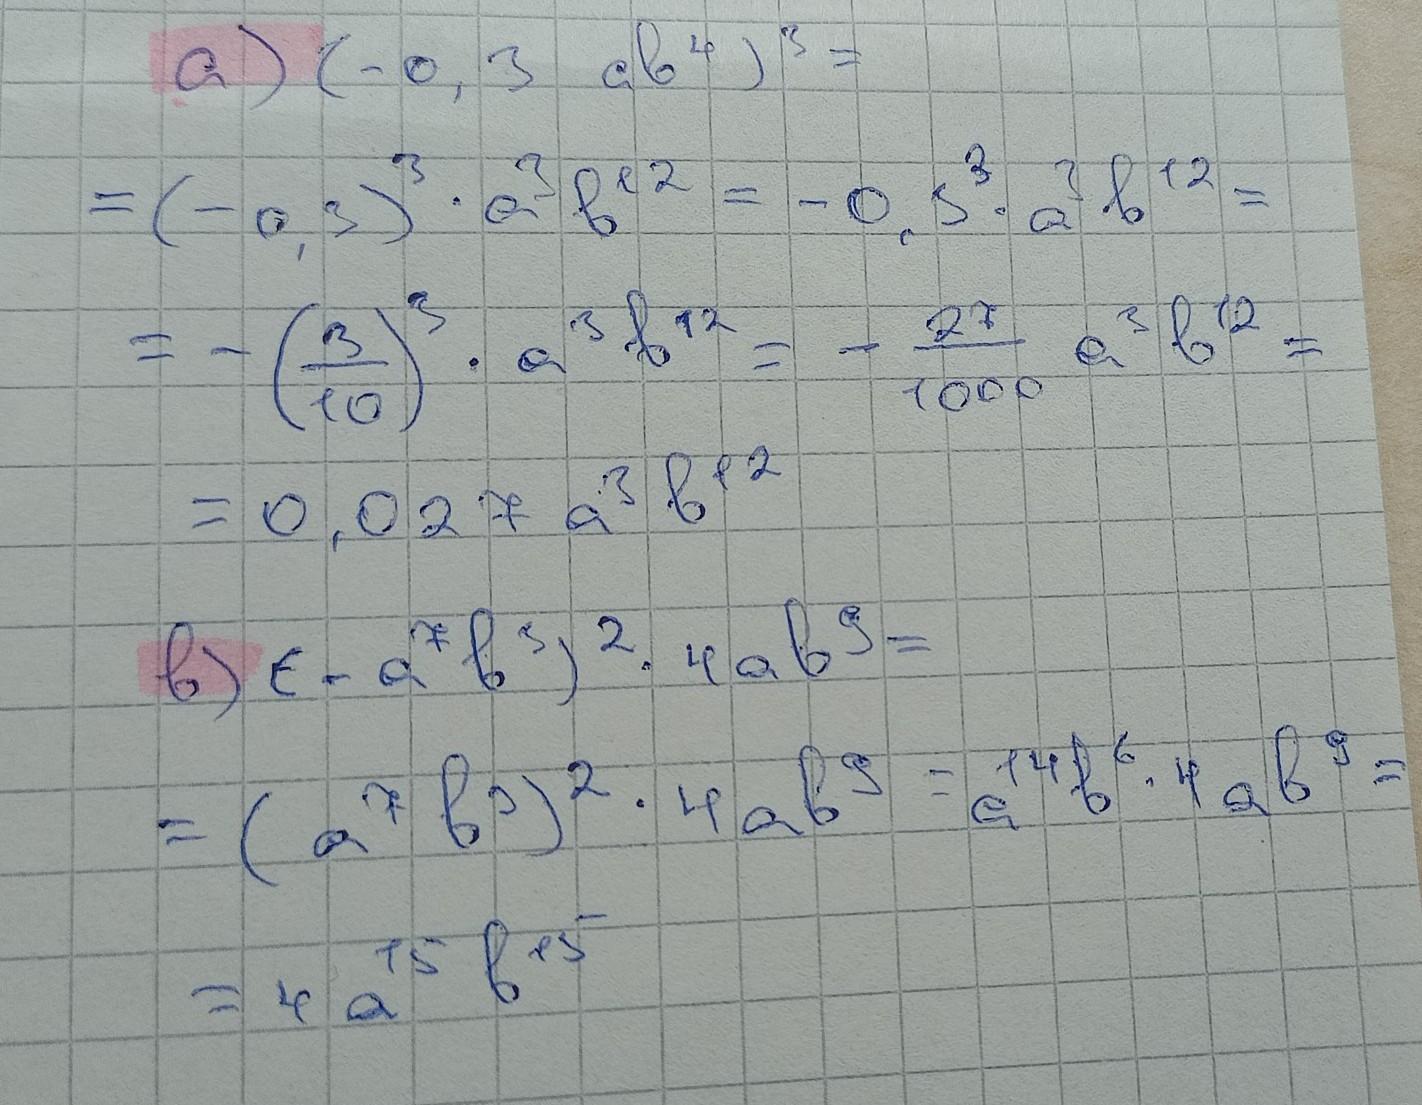 а) (-0,3 ab⁴)³ =
= (-0,3)³ · a³b¹² = -0,3³ · a³b¹² =
= -(3/10)³ · a³b¹² = - 27/1000 a³b¹² =
= 0,027 a³b¹²
в) (-a⁷b³)² · 4ab⁹ =
= (a⁷b³)² · 4ab⁹ = a¹⁴b⁶ · 4ab⁹ =
= 4a¹⁵b¹⁵